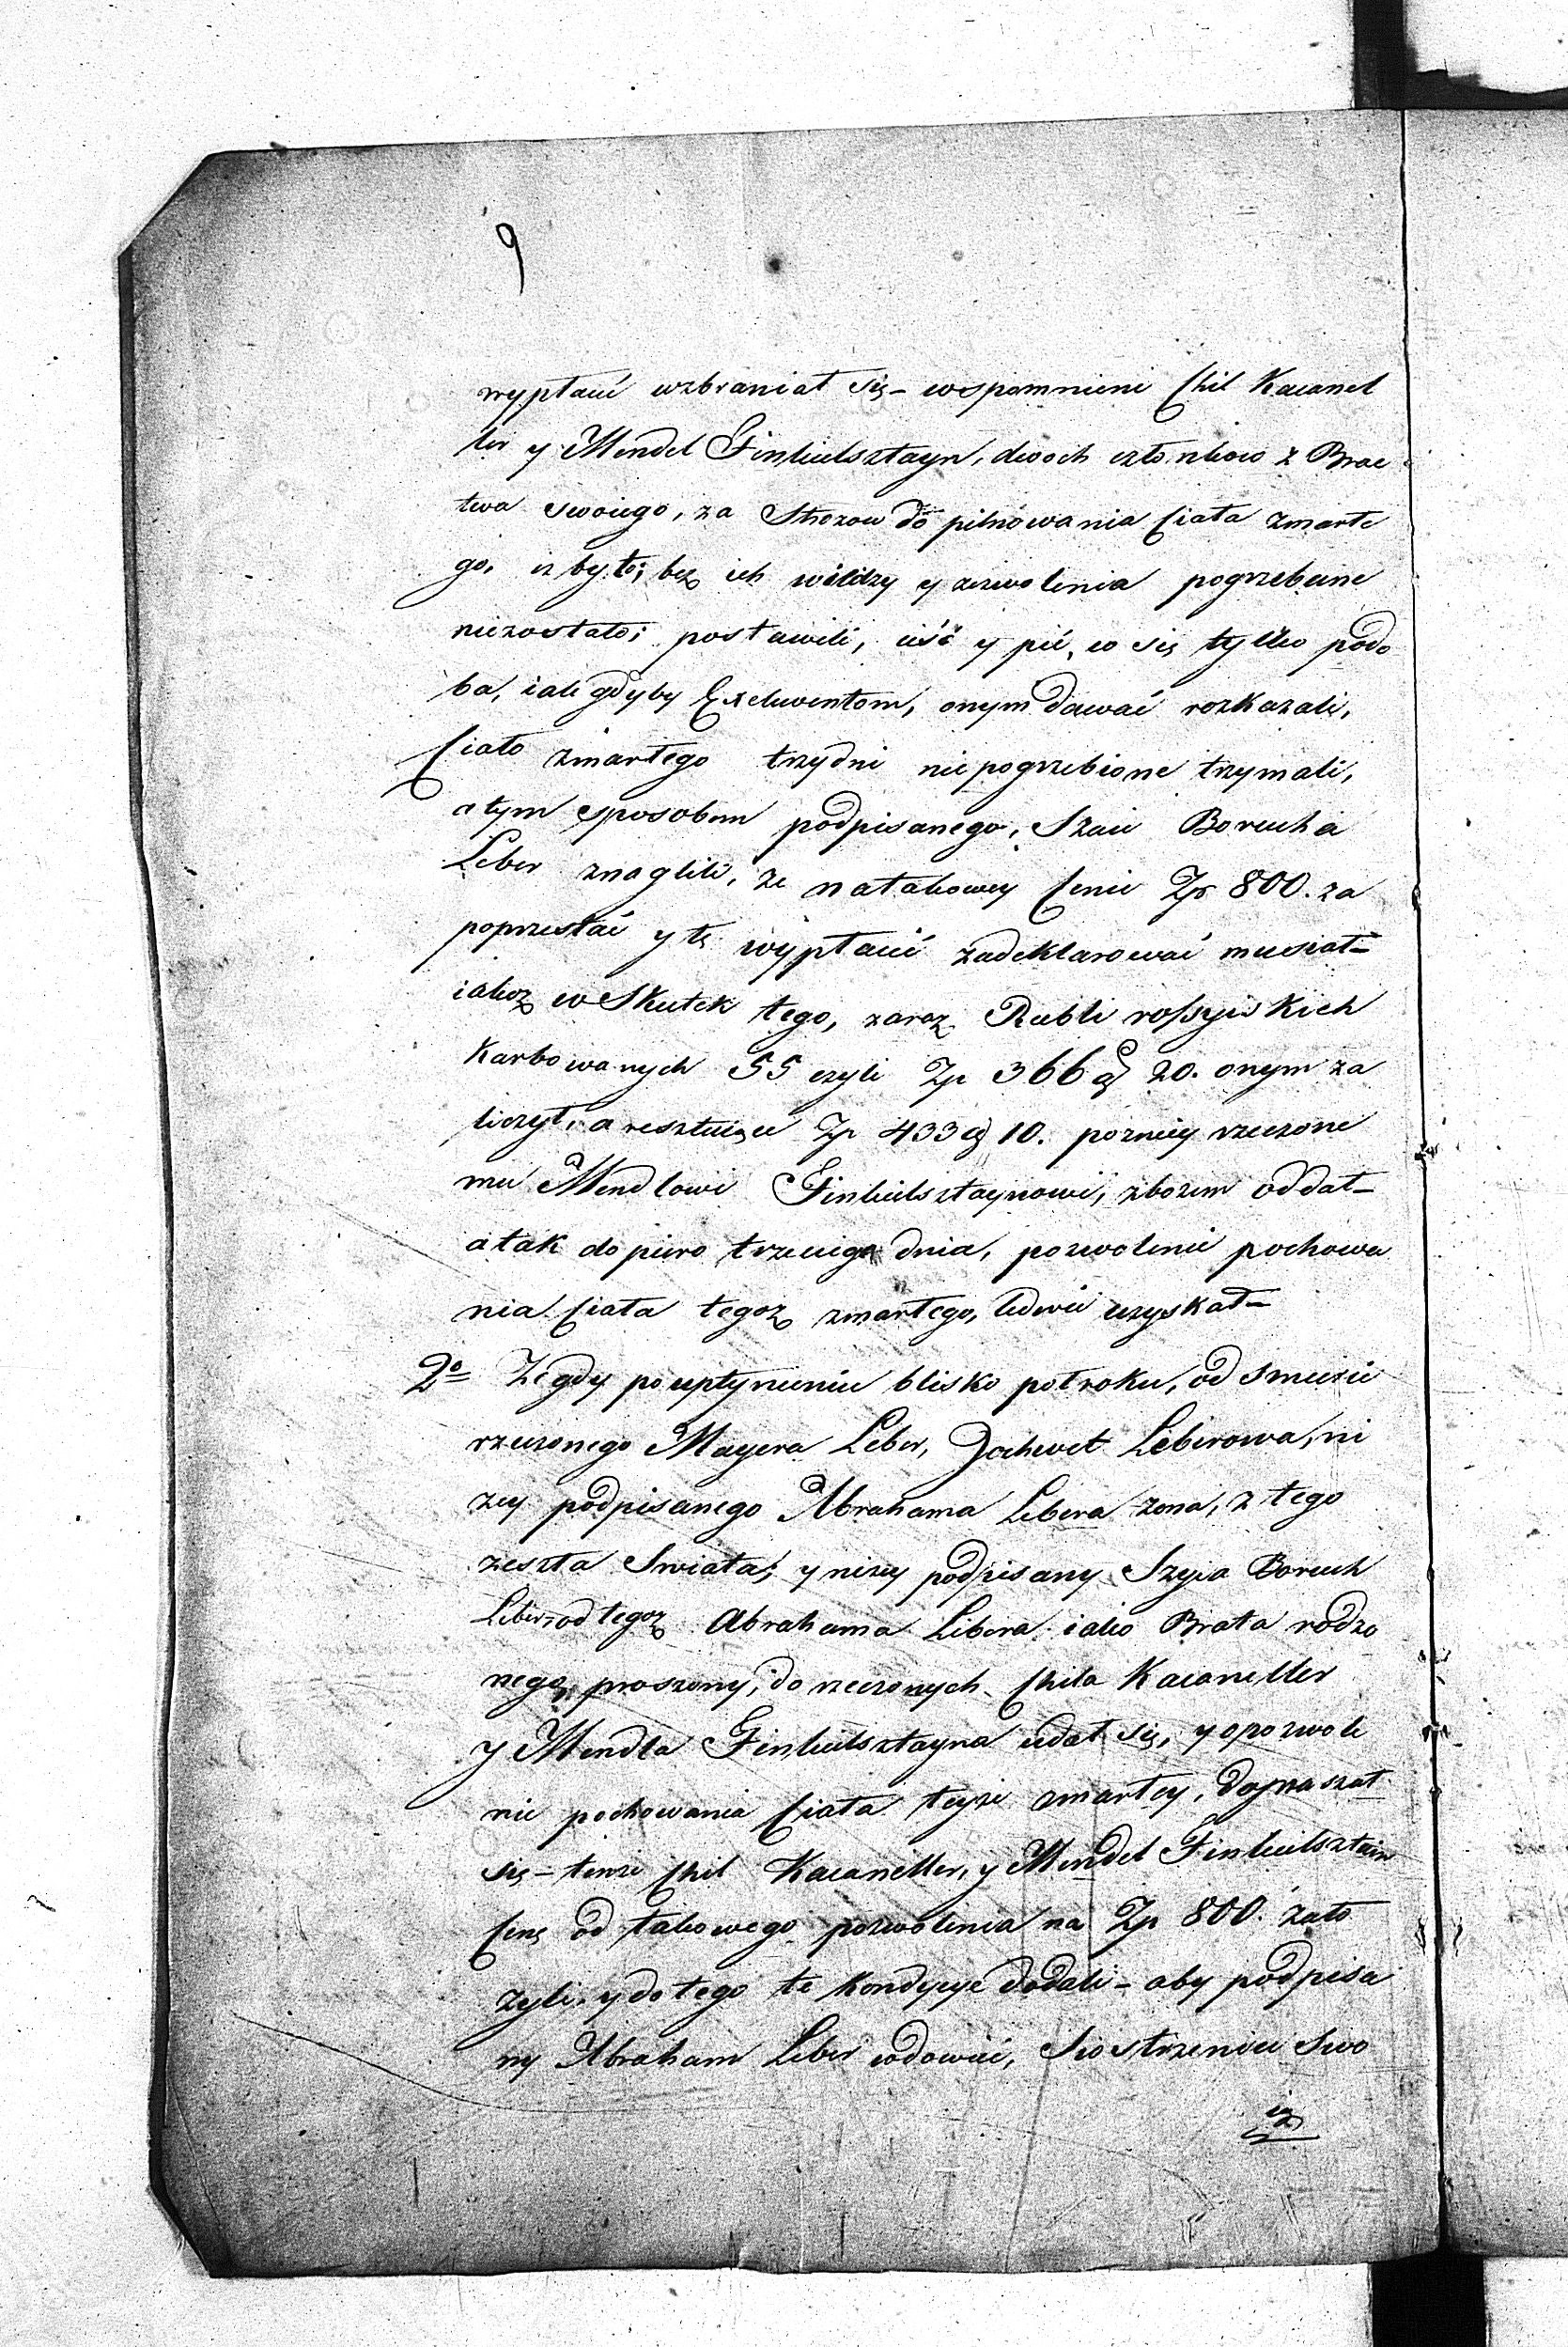 9
wypłacić wzbraniał się – wspomnieni Chil Kacanel
ler y Mendel Finkielsztayn, dwoch członkow z Brac
twa swoiego, za Strozow do pilnowania Ciała zmarłe
go, iz by to; bez ich wiedzy y zezwolenia pogrzebane
niezostało; postawili, ieść y pić, co się tylko podo
ba, iak gdyby Exekwentom, onym dawać rozkazali,
Ciało zmarłego trzy dni nie pogrzebione trzymali,
a tym sposobem podpisanego, Szaii Borucha
Leber znaglili, że natakowey Cenie Zp 800. za
poprzestać y tę wypłacić zadeklarować musiał –
iakoz w Skutek tego, zaraz Rubli rossyiskich
Karbowanych 55 czyli Zp 366 gr 20. onym za
liczył, a resztuiące Zp 433 gr 10. pozniey rzeczone
mu Mendlowi Finkielsztaynowi, zbożem oddał –
a tak dopiero trzeciego dnia, pozwolenie pochowa
nia Ciała tegoz zmarłego, ledwie uzyskał –
2o Ze gdy po upłynieniu blisko poł roku, od smierci
rzeczonego Mayera Leber, Jochwet Leberowa, ni
zey podpisanego Abrahama Lebera zona, z tego
zeszła Swiata; y nizey podpisany Szyia Boruch
Leber, od tegoz Abrahama Lebera iako Brata rodzo
nego, proszony, do rzeczonych Chila Kacaneller
y Mendla Finkielsztayna udał się, y o pozwole
nie pochowania Ciała teyze zmarłey, dopraszał
się – tenze Chil Kacaneller, y Mendel Finkielsztain
Cenę od takowego pozwolenia na Zp 800. zało
zyli, y do tego te Kondycye dodali – aby podpisa
ny Abraham Leber wdowiec, Siostrzenice Swo
ią